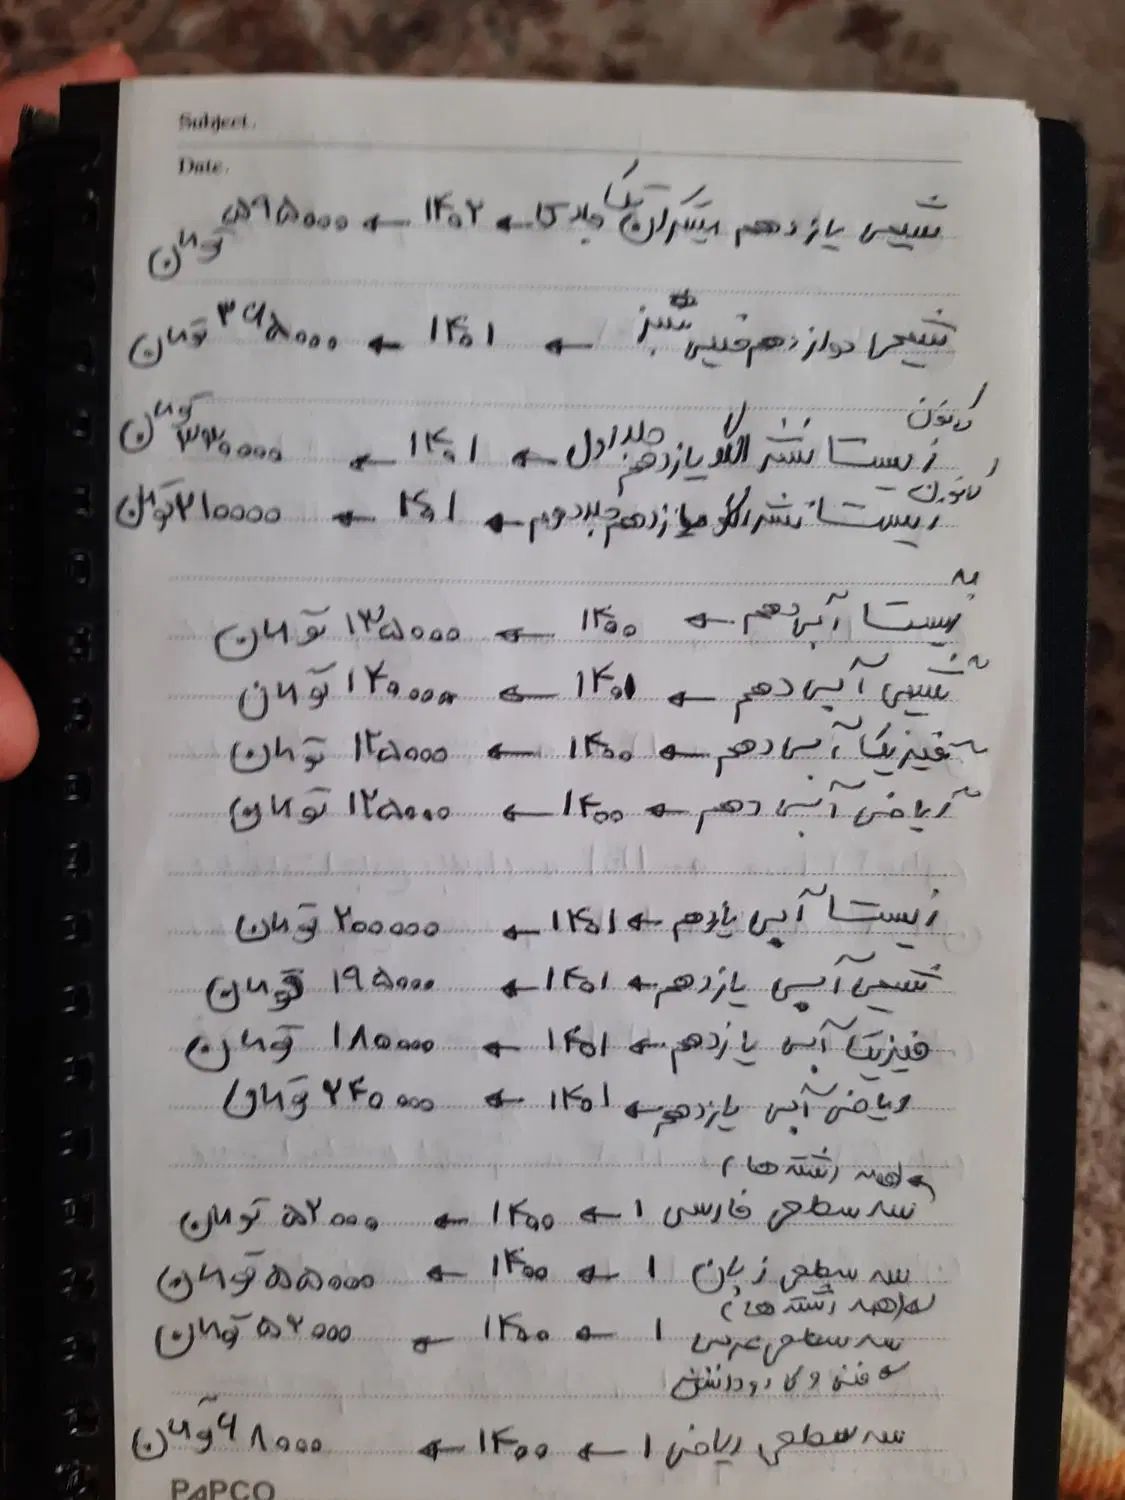 Subject.
Date.
شیمی یازدهم میکرو تک جلد ← ۱۴۰۲ ← ۵۹۵۰۰۰ تومان
شیمی دوازدهم فیل شیمی ← ۱۴۰۱ ← ۳۶۵۰۰۰ تومان
کانون
زیست نشر الگو یازدهم جلد اول ← ۱۴۰۱ ← تومان
کانون
زیست نشر الگو یازدهم جلد دوم ← ۱۴۰۱ ← ۲۱۰۰۰۰ تومان
زیست آبی دهم ← ۱۴۰۰ ← ۱۳۵۰۰۰ تومان
شیمی آبی دهم ← ۱۴۰۱ ← ۱۴۰۰۰۰ تومان
فیزیک آبی دهم ← ۱۴۰۰ ← ۱۲۵۰۰۰ تومان
ریاضی آبی دهم ← ۱۴۰۰ ← ۱۲۵۰۰۰ تومان
زیست آبی یازدهم ← ۱۴۰۱ ← ۲۰۰۰۰۰ تومان
شیمی آبی یازدهم ← ۱۴۰۱ ← ۱۹۵۰۰۰ تومان
فیزیک آبی یازدهم ← ۱۴۰۱ ← ۱۸۰۰۰۰ تومان
ریاضی آبی یازدهم ← ۱۴۰۱ ← ۲۴۰۰۰۰ تومان
(همه رشته ها)
سه سطحی فارسی ۱ ← ۱۴۰۰ ← ۵۲۰۰۰ تومان
سه سطحی زبان ۱ ← ۱۴۰۰ ← ۵۵۰۰۰ تومان
(همه رشته ها)
سه سطحی عربی ۱ ← ۱۴۰۰ ← ۵۲۰۰۰ تومان
فنی و کارودانش
سه سطحی ریاضی ۱ ← ۱۴۰۰ ← ۶۸۰۰۰ تومان
PAPCO